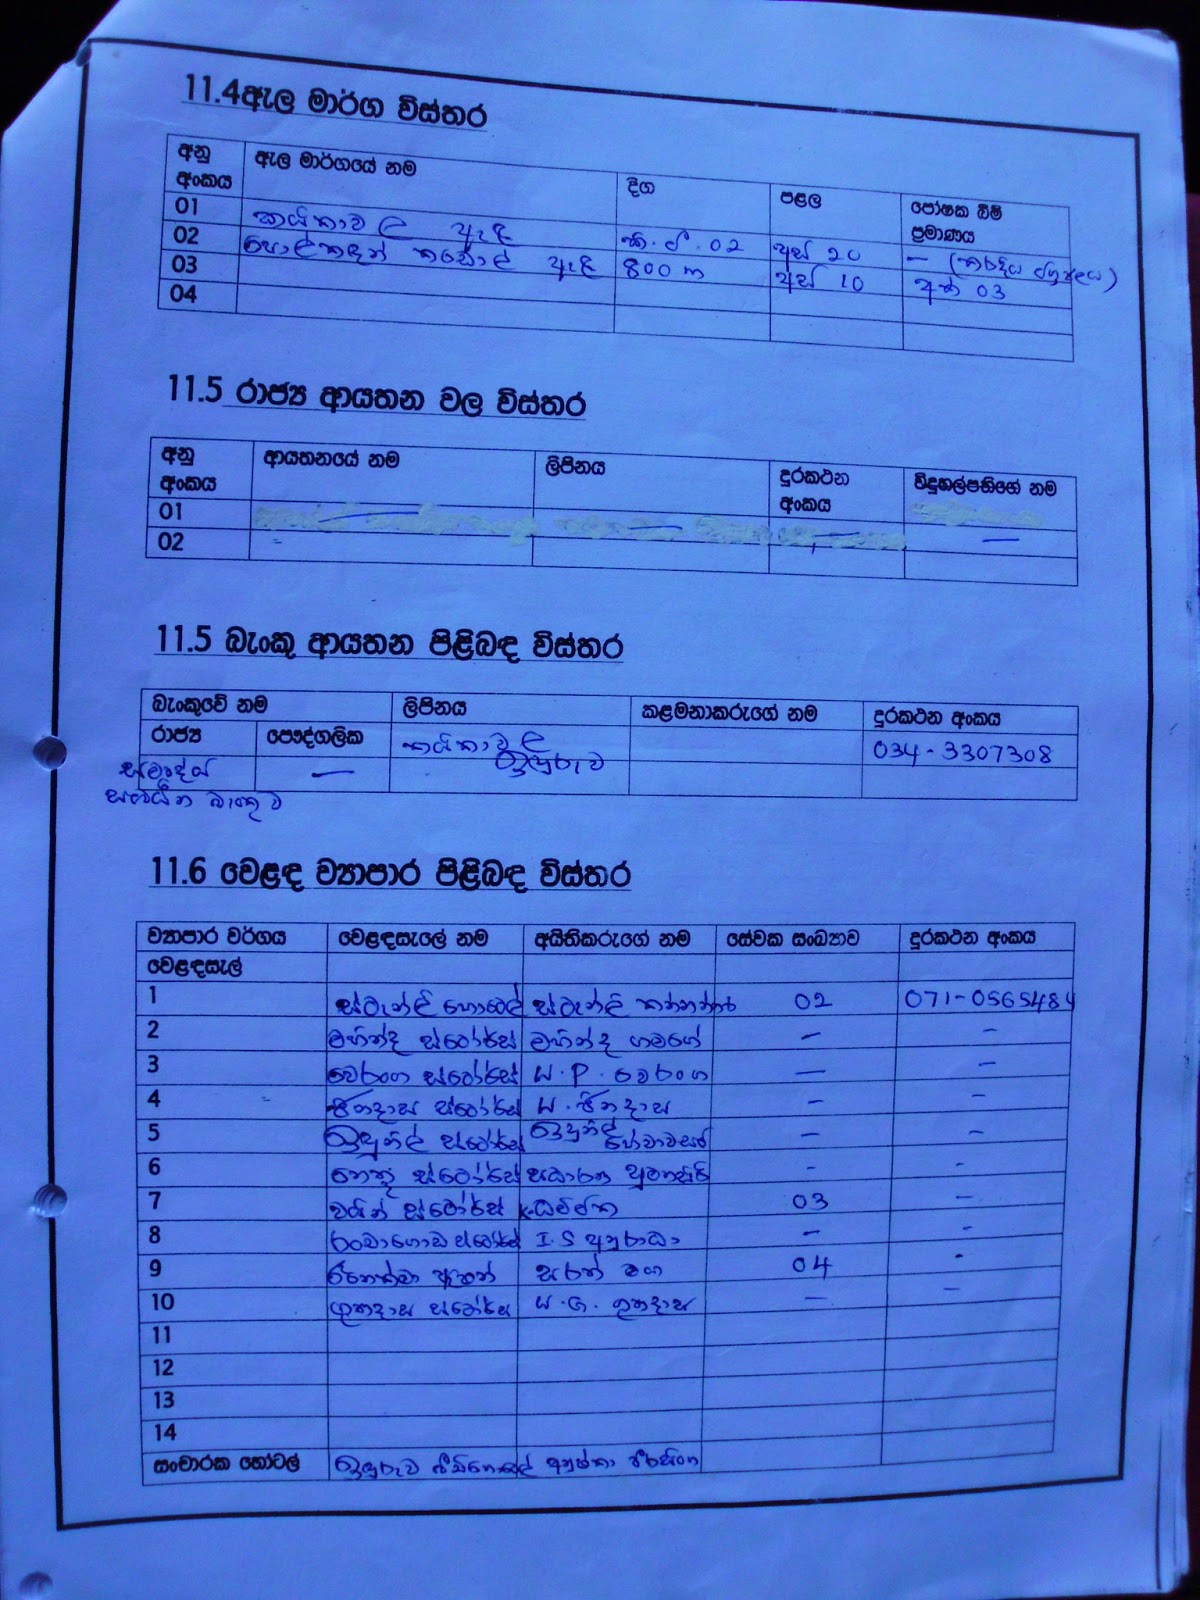 11.4 ඇල මාර්ග විස්තර
අනු අංකය ඇල මාර්ගයේ නම දිග පළල පෝෂක බිම් ප්‍රමාණය
01 කයිකාවල ඇළ කි.මී. 02 අඩි 20 —
02 පොල්කඳන් කඩොල් ඇළ 800 m අඩි 10 අක් 03
03
04
11.5 රාජ්‍ය ආයතන වල විස්තර
අනු අංකය ආයතනයේ නම ලිපිනය දුරකථන අංකය විදුහල්පතිගේ නම
01
02 —
11.5 බැංකු ආයතන පිළිබඳ විස්තර
බැංකුවේ නම ලිපිනය කළමනාකරුගේ නම දුරකථන අංකය
රාජ්‍ය පෞද්ගලික කයිකාවල ඉඳුරුව 034-3307308
සමෘද්ධි —
බැංකුව
11.6 වෙළඳ ව්‍යාපාර පිළිබඳ විස්තර
ව්‍යාපාර වර්ගය වෙළඳසැලේ නම අයිතිකරුගේ නම සේවක සංඛ්‍යාව දුරකථන අංකය
වෙළඳසැල්
1 ස්ටැන්ලි හොටෙල් ස්ටැන්ලි 02 071-0565484
2 මහින්ද ස්ටෝර්ස් මහින්ද ගමගේ — —
3 චෙරංග ස්ටෝර්ස් W.P. චෙරංග — —
4 ජිනදාස ස්ටෝර්ස් W. ජිනදාස — —
5 ඉඳුනිල් ස්ටෝර්ස් ඉඳුනිල් — —
6 නෙතු ස්ටෝර්ස් - -
7 වයින් ස්ටෝර්ස් K. ධම්මික 03 —
8 ස්ටෝර්ස් I.S අනුරාධා — -
9 සරත් 04 -
10 ගුණදාස ස්ටෝර්ස් W.G. ගුණදාස — —
11
12
13
14
සංචාරක හෝටල් ඉඳුරුව බීච් හොටෙල් අනුෂ්කා